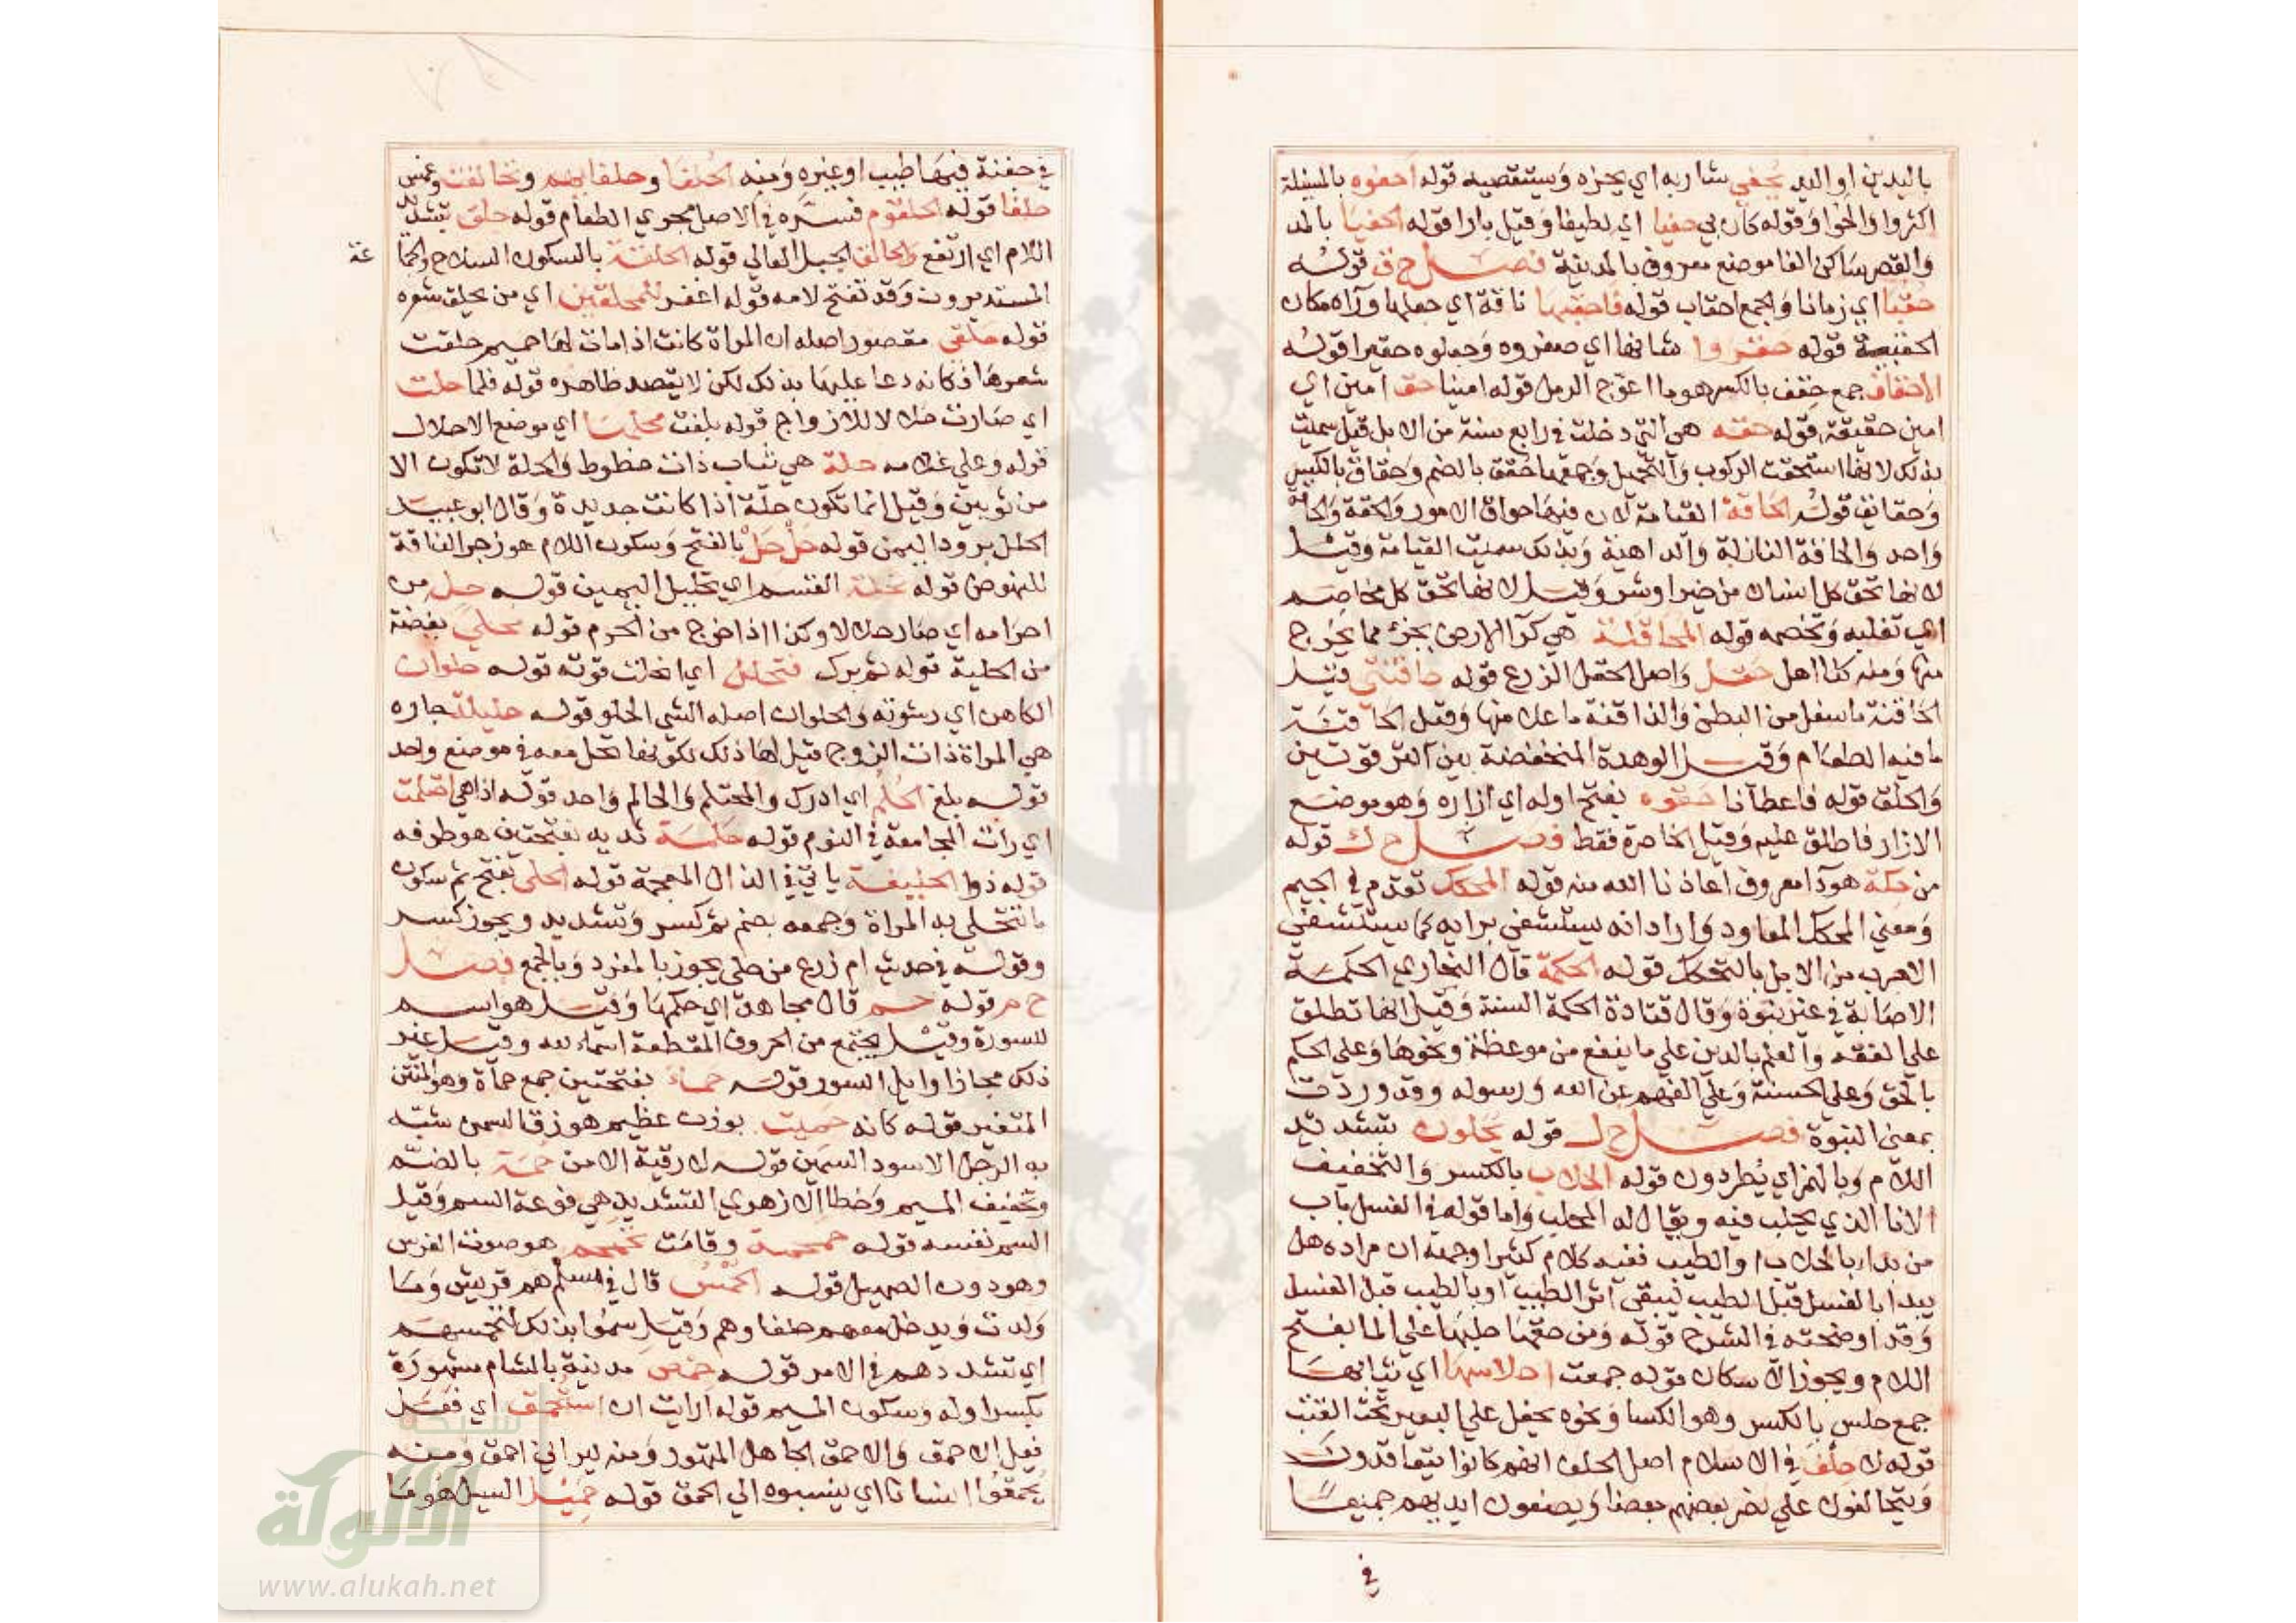 باليدين او اليد يحفي شاربه اي يجزه ويستقصيه قوله احفوه بالمسئلة
اكثروا والحوا وقوله كان بي حفيا اي لطيفا وقيل بارا قوله الحفيا بالمد
والقصر ساكن الفا موضع معروف بالمدينة فصل ح ق قوله
حقبا اي زمانا والجمع احقاب قوله فاحقبها ناقة اي جعلها وراه مكان
الحقيبة قوله حقروا شانها اي صغروه وجعلوه حقيرا قوله
الاحقاف جمع حقف بالكسر هو ما اعوج الرمل قوله امينا حق امين اي
امين حقيقة قوله حقه هي التي دخلت في رابع سنة من الابل قيل سميت
بذلك لانها استحقت الركوب والتحميل وجمعها حقق بالضم وحقاق بالكسر
وحقائق قوله الحاقة القيامة لان فيها حواق الامور والحقة والحاقة
واحد والحاقة النازلة والداهية وبذلك سميت القيامة وقيل
لانها تحق كل انسان من خير او شر وقيل لانها تحق كل مخاصم
اي تغلبه وتخصمه قوله المحاقلة هي كرآ الارض بجزء مما يخرج
منها ومنه كنا اهل حقل واصل الحقل الزرع قوله حاقنتي قيل
الحاقنة ما سفل من البطن والذاقنة ما علا منها وقيل الحاقنة
ما فيه الطعام وقيل الوهدة المنخفضة بين الترقوتين
والحلق قوله فاعطانا حقوه بفتح اوله اي ازاره وهو موضع
الازار فاطلق عليه وقيل الخاصرة فقط فصل ح ك قوله
من حكة هو دا معروف اعاذنا الله منه قوله المحكك تقدم في الجيم
ومعني المحكك المعاود واراد انه يستشفي برايه كما يستشفي
الاجرب من الابل بالتحكك قوله الحكمة قال البخاري الحكمة
الاصابة في غير نبوة وقال قتادة الحكمة السنة وقيل انها تطلق
علي الفقه والعلم بالدين علي ما ينفع من موعظة ونحوها وعلي الحكم
بالحق وعلي الحسنة وعلي الفهم عن الله ورسوله وقد وردت
بمعني النبوة فصل ح ل قوله يحلون بتشديد
اللام وبالهمز اي يطردون قوله الحلاب بالكسر والتخفيف
الانا الذي يحلب فيه ويقال له المحلب واما قوله في الغسل باب
من بدا بالحلاب او الطيب ففيه كلام كثير اوجهه ان مراده هل
يبدا بالغسل قبل الطيب ليبقي اثر الطيب او بالطيب قبل الغسل
وقد اوضحته في الشرح قوله ومن حقها حلبها علي الما بفتح
اللام ويجوز الاسكان قوله جمعت احلاسها اي ثيابها
جمع حلس بالكسر وهو الكسا ونحوه يجعل علي البعير تحت القتب
قوله لا حلف في الاسلام اصل الحلف انهم كانوا يتعاقدون
ويتحالفون علي نصر بعضهم بعضا ويضعون ايديهم جميعا
في
في جفنة فيها طيب او غيره ومنه الحلفا وحلفايهم وتحالفت وغمس
حلفا قوله الحلقوم فسره في الاصل مجري الطعام قوله حلق بتشديد
اللام اي ارتفع والحالق الجبل العالي قوله الحلقة بالسكون السلاح والجما
عة
المستديرون وقد تفتح لامه قوله اغفر للمحلقين اي من يحلق شعره
قوله حلقي مقصور اصله ان المراة كانت اذا مات لها حميم حلقت
شعرها فكانه دعا عليها بذلك لكن لا يقصد ظاهره قوله فلما حلت
اي صارت حلالا للازواج قوله بلغت محلها اي موضع الاحلال
قوله وعلي غلامه حلة هي ثياب ذات خطوط والحلة لا تكون الا
من ثوبين وقيل انما تكون حلة اذا كانت جديدة وقال ابو عبيد
الحلل برود اليمن قوله حل حل بالفتح وسكون اللام هو زجر الناقة
للنهوض قوله تحلة القسم اي تحليل اليمين قوله حل من
احرامه اي صار حلالا وكذا اذا خرج من الحرم قوله محلي بفضة
من الحلية قوله ثم برك فتحلل اي انحلت قوته قوله حلوان
الكاهن اي رشوته والحلوان اصله الشي الحلو قوله حليلة جاره
هي المراة ذات الزوج قيل لها ذلك لكونها تحل معه في موضع واحد
قوله بلغ الحلم اي ادرك والمحتلم والحالم واحد قوله اذا هي احتلمت
اي رات المجامعة في النوم قوله حلمة ثديه بفتحتين هو طرفه
قوله ذوا الحليفة ياتي في الذال المعجمة قوله الحلي بفتح ثم سكون
ما تتحلي به المراة وجمعه بضم ثم كسر وتشديد ويجوز كسر
وقوله في حديث ام زرع من حلي يجوز بالمفرد وبالجمع فصل
ح م قوله حم قال مجاهد اي حكمها وقيل هو اسم
للسورة وقيل يجتمع من الحروف المقطعة اسماء لله وقيل غير
ذلك مجازا وايل السور قوله حماء بفتحتين جمع حماة وهو المنتن
المتغير قوله كانه حميت بوزن عظيم هو زق السمن شبه
به الرجل الاسود السمين قوله لا رقية الا من حمة بالضم
وتخفيف الميم وخطا الازهري التشديد هي فوعة السم وقيل
السم نفسه قوله حمحمة وقامت تحمحم هو صوت الفرس
وهو دون الصهيل قوله الحمس قال في مسلم هم قريش وما
ولدت ويدخل معهم حلفاوهم وقيل سموا بذلك لتحمسهم
اي تشددهم في الامر قوله حمص مدينة بالشام مشهورة
بكسر اوله وسكون الميم قوله ارايت ان استحمق اي فعل
فعل الاحمق والاحمق الجاهل المتهور ومنه ليراني احمق ومنه
يحمقوا انسانا اي ينسبوه الي الحمق قوله حميل السيل هو ما
شبكة
الألوكة
www.alukah.net